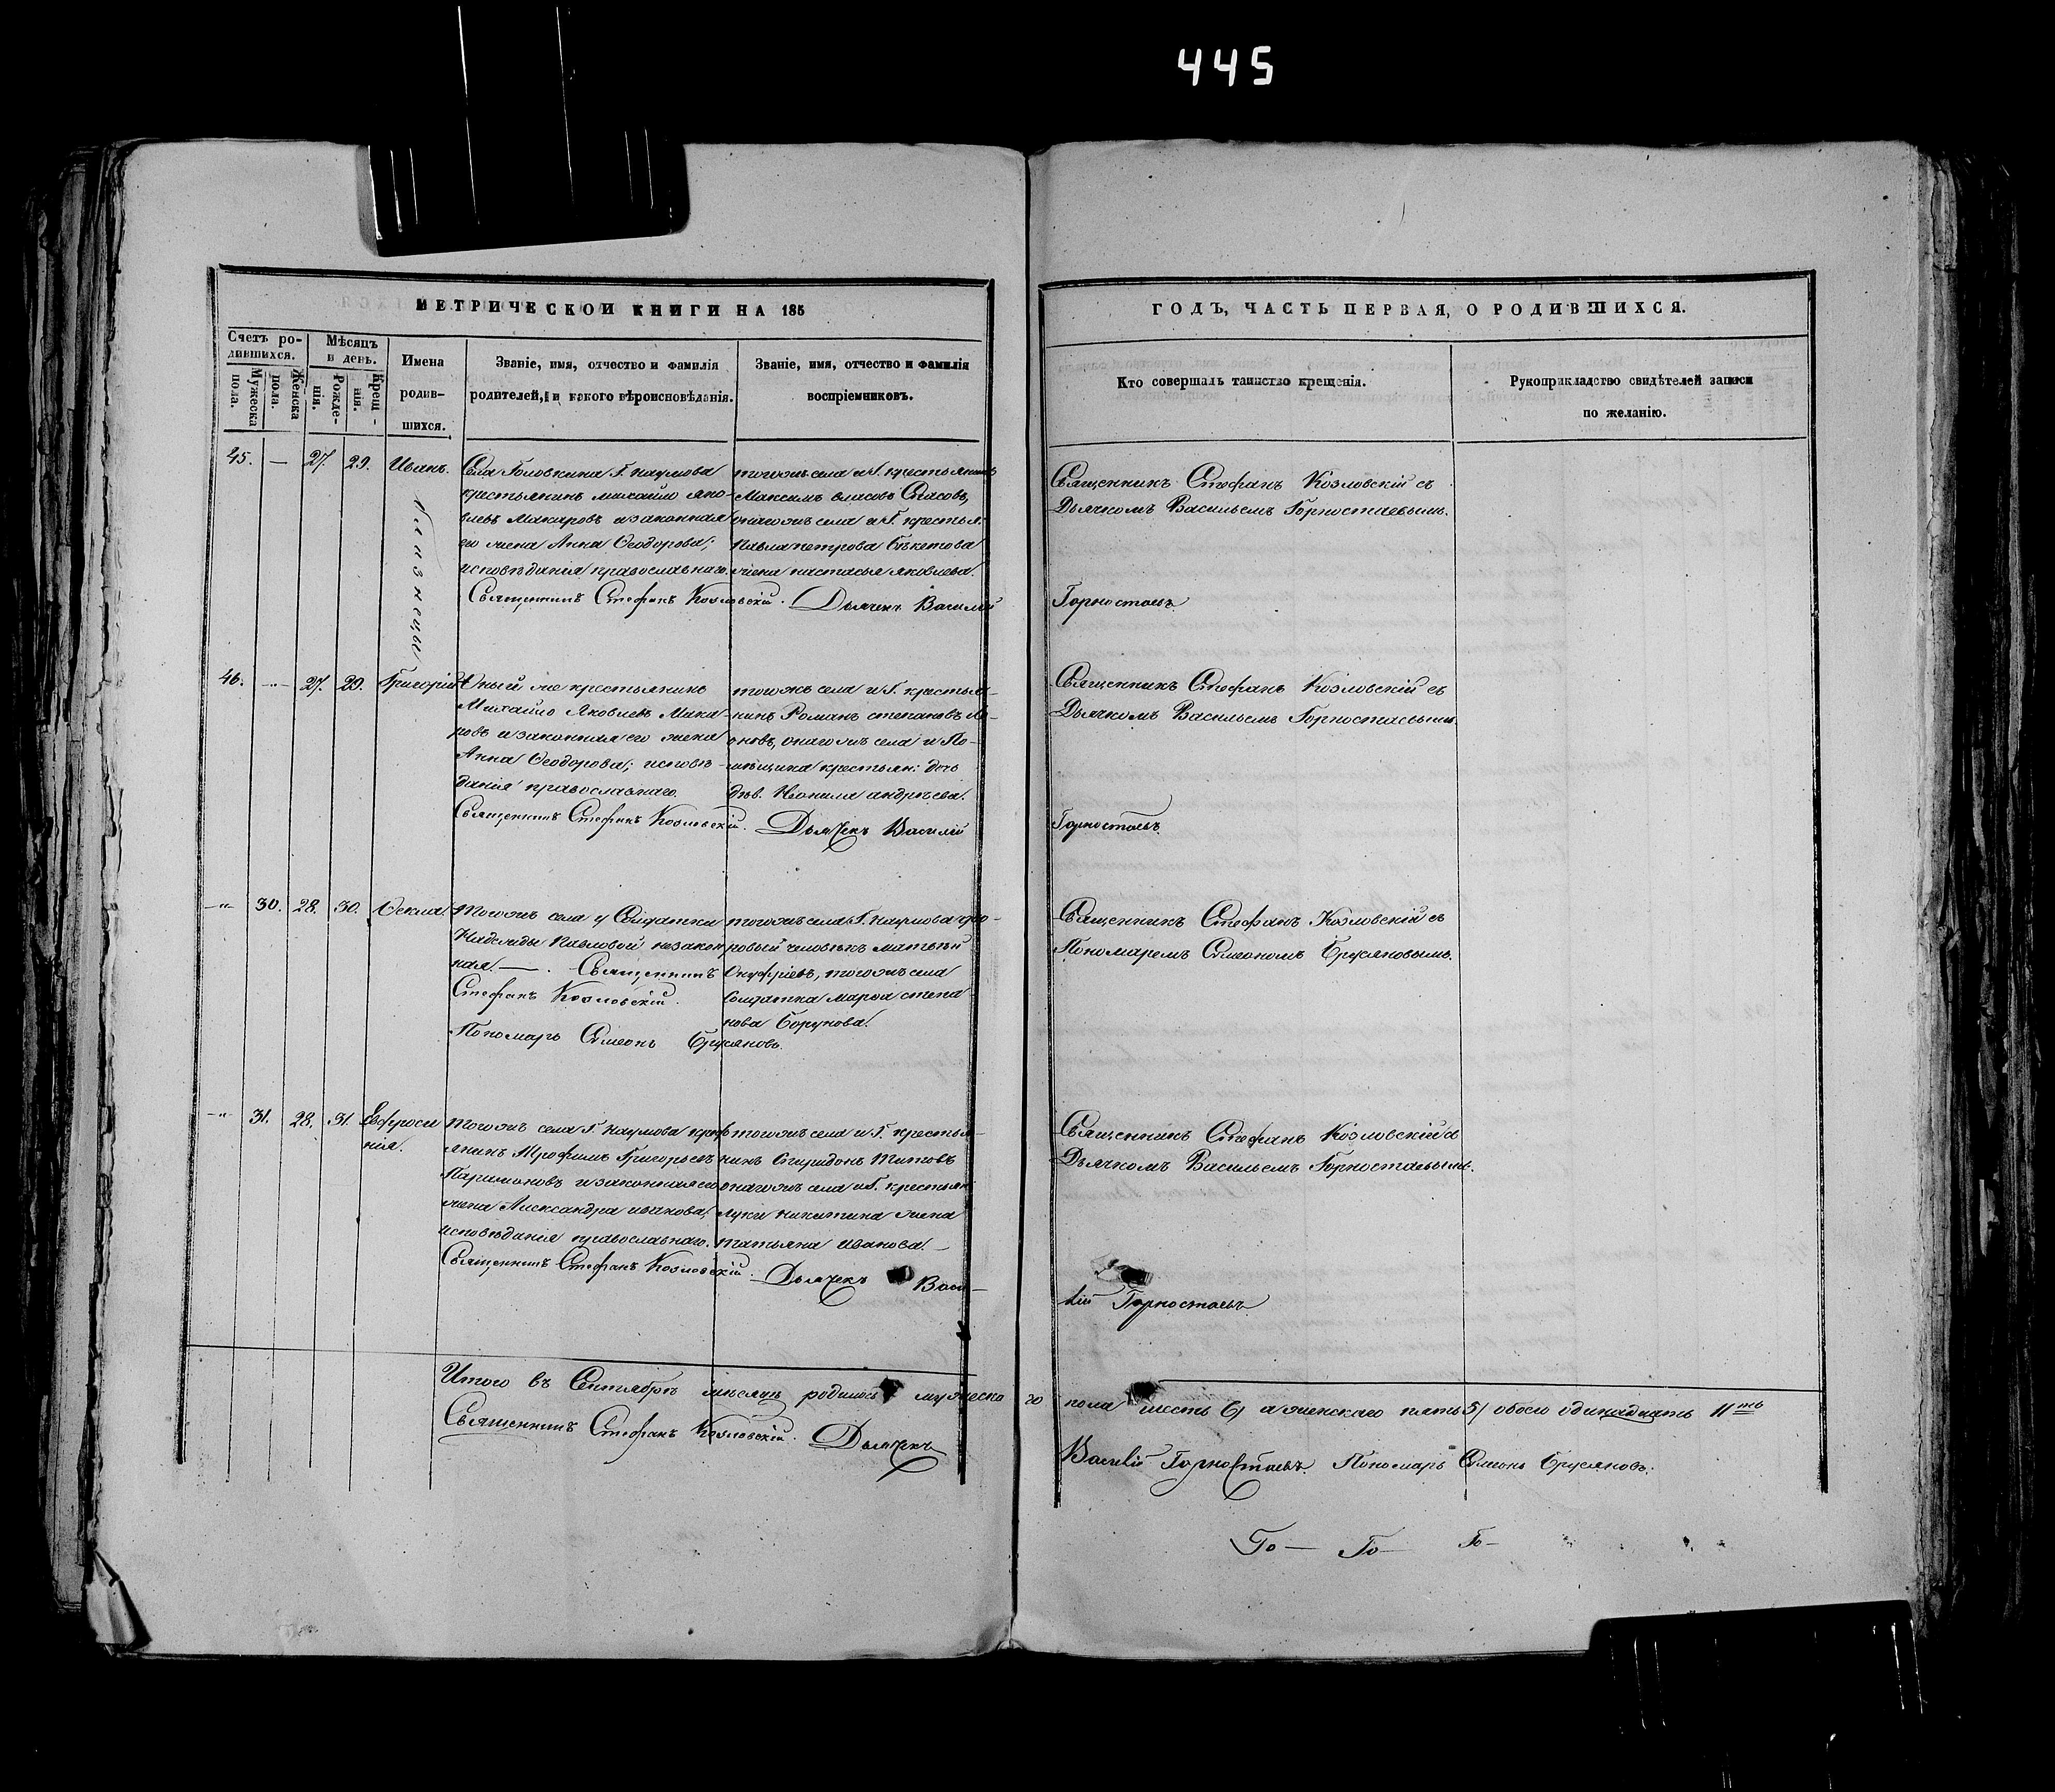 445
МЕТРИЧЕСКОИ КНИГИ НА 185
ГОДЪ, ЧАСТЬ ПЕРВАЯ, О РОДИВШИХСЯ.
Счетъ ро-
дившихся.
Мужеска
пола.
Женска
пола.
Мѣсяцъ
и день.
Рожде-
нія.
Крещ-
нія.
Имена
родив-
шихся.
Званіе, имя, отчество и фамилія
родителей, и какого вѣроисповѣданія.
Званіе, имя, отчество и фамилія
воспріемниковъ.
Кто совершалъ таинство крещенія.
Рукоприкладство свидѣтелей записи
по желанію.
45. — 27. 29. Иванъ.
Близнецы
Села Головкина Г. Наумова
крестьянинъ Михайло Яко-
влевъ Макаровъ и законная
его жена Анна Ѳеодорова;
исповѣданія православнаго.
Священникъ Стефанъ Козловскій. Дьячекъ Василій
тогожъ села и Г. крестьянинъ
Максимъ Власовъ Спасовъ,
онагожъ села и Г. крестья:
Павла Петрова Бекетова
жена Настасья Яковлева.
Священникъ Стефанъ Козловскій съ
Дьячкомъ Васильемъ Горностаевымъ.
Горностаевъ
46. —"— 27. 29. Григорій
Оный же крестьянинъ
Михайло Яковлевъ Мака-
ровъ и законная его жена
Анна Ѳеодорова; исповѣ-
данія православнаго.
Священникъ Стефанъ Козловскій. Дьячекъ Василій
тогожъ села и Г. крестья-
нинъ Романъ Степановъ
оновъ, онагожъ села и По-
мѣщика крестьян: дочь
дѣв. Неонила Андреева.
Священникъ Стефанъ Козловскій съ
Дьячкомъ Васильемъ Горностаевымъ.
Горностаевъ
—"— 30. 28. 30. Ѳекла.
Тогожъ села у Солдатки
Надежды Павловой незакон
ная. —. Священникъ
Стефанъ Козловскій.
Пономарь Симеонъ Брусяновъ.
тогожъ села Г. Наумова дво-
ровый человѣкъ Матвѣй
Онуфріевъ, тогожъ села
Солдатка Марѳа Степа
нова Борунова.
Священникъ Стефанъ Козловскій съ
Пономаремъ Симеономъ Брусяновымъ.
—"— 31. 28. 31. Евфроси
нія.
Тогожъ села Г. Наумова крест
янинъ Трофимъ Григорьевъ
Паримоновъ и законная его
жена Александра Иванова,
исповѣданія православнаго.
Священникъ Стефанъ Козловскій. Дьячекъ Васи-
тогожъ села и Г. крестья-
нинъ Спиридонъ Титовъ
онагожъ села и Г. крестьян
Луки Никитина жена
Татьяна Иванова.
Священникъ Стефанъ Козловскій съ
Дьячкомъ Васильемъ Горностаевымъ.
лій Горностаевъ
Итого въ Сентябрѣ мѣсяцѣ родилось мужеско го пола шесть 6) а женскаго пять 5) обоего одинадцать 11ть
Священникъ Стефанъ Козловскій. Дьячекъ Василій Горностаевъ. Пономарь Симеонъ Брусяновъ.
Го— Го— Го—